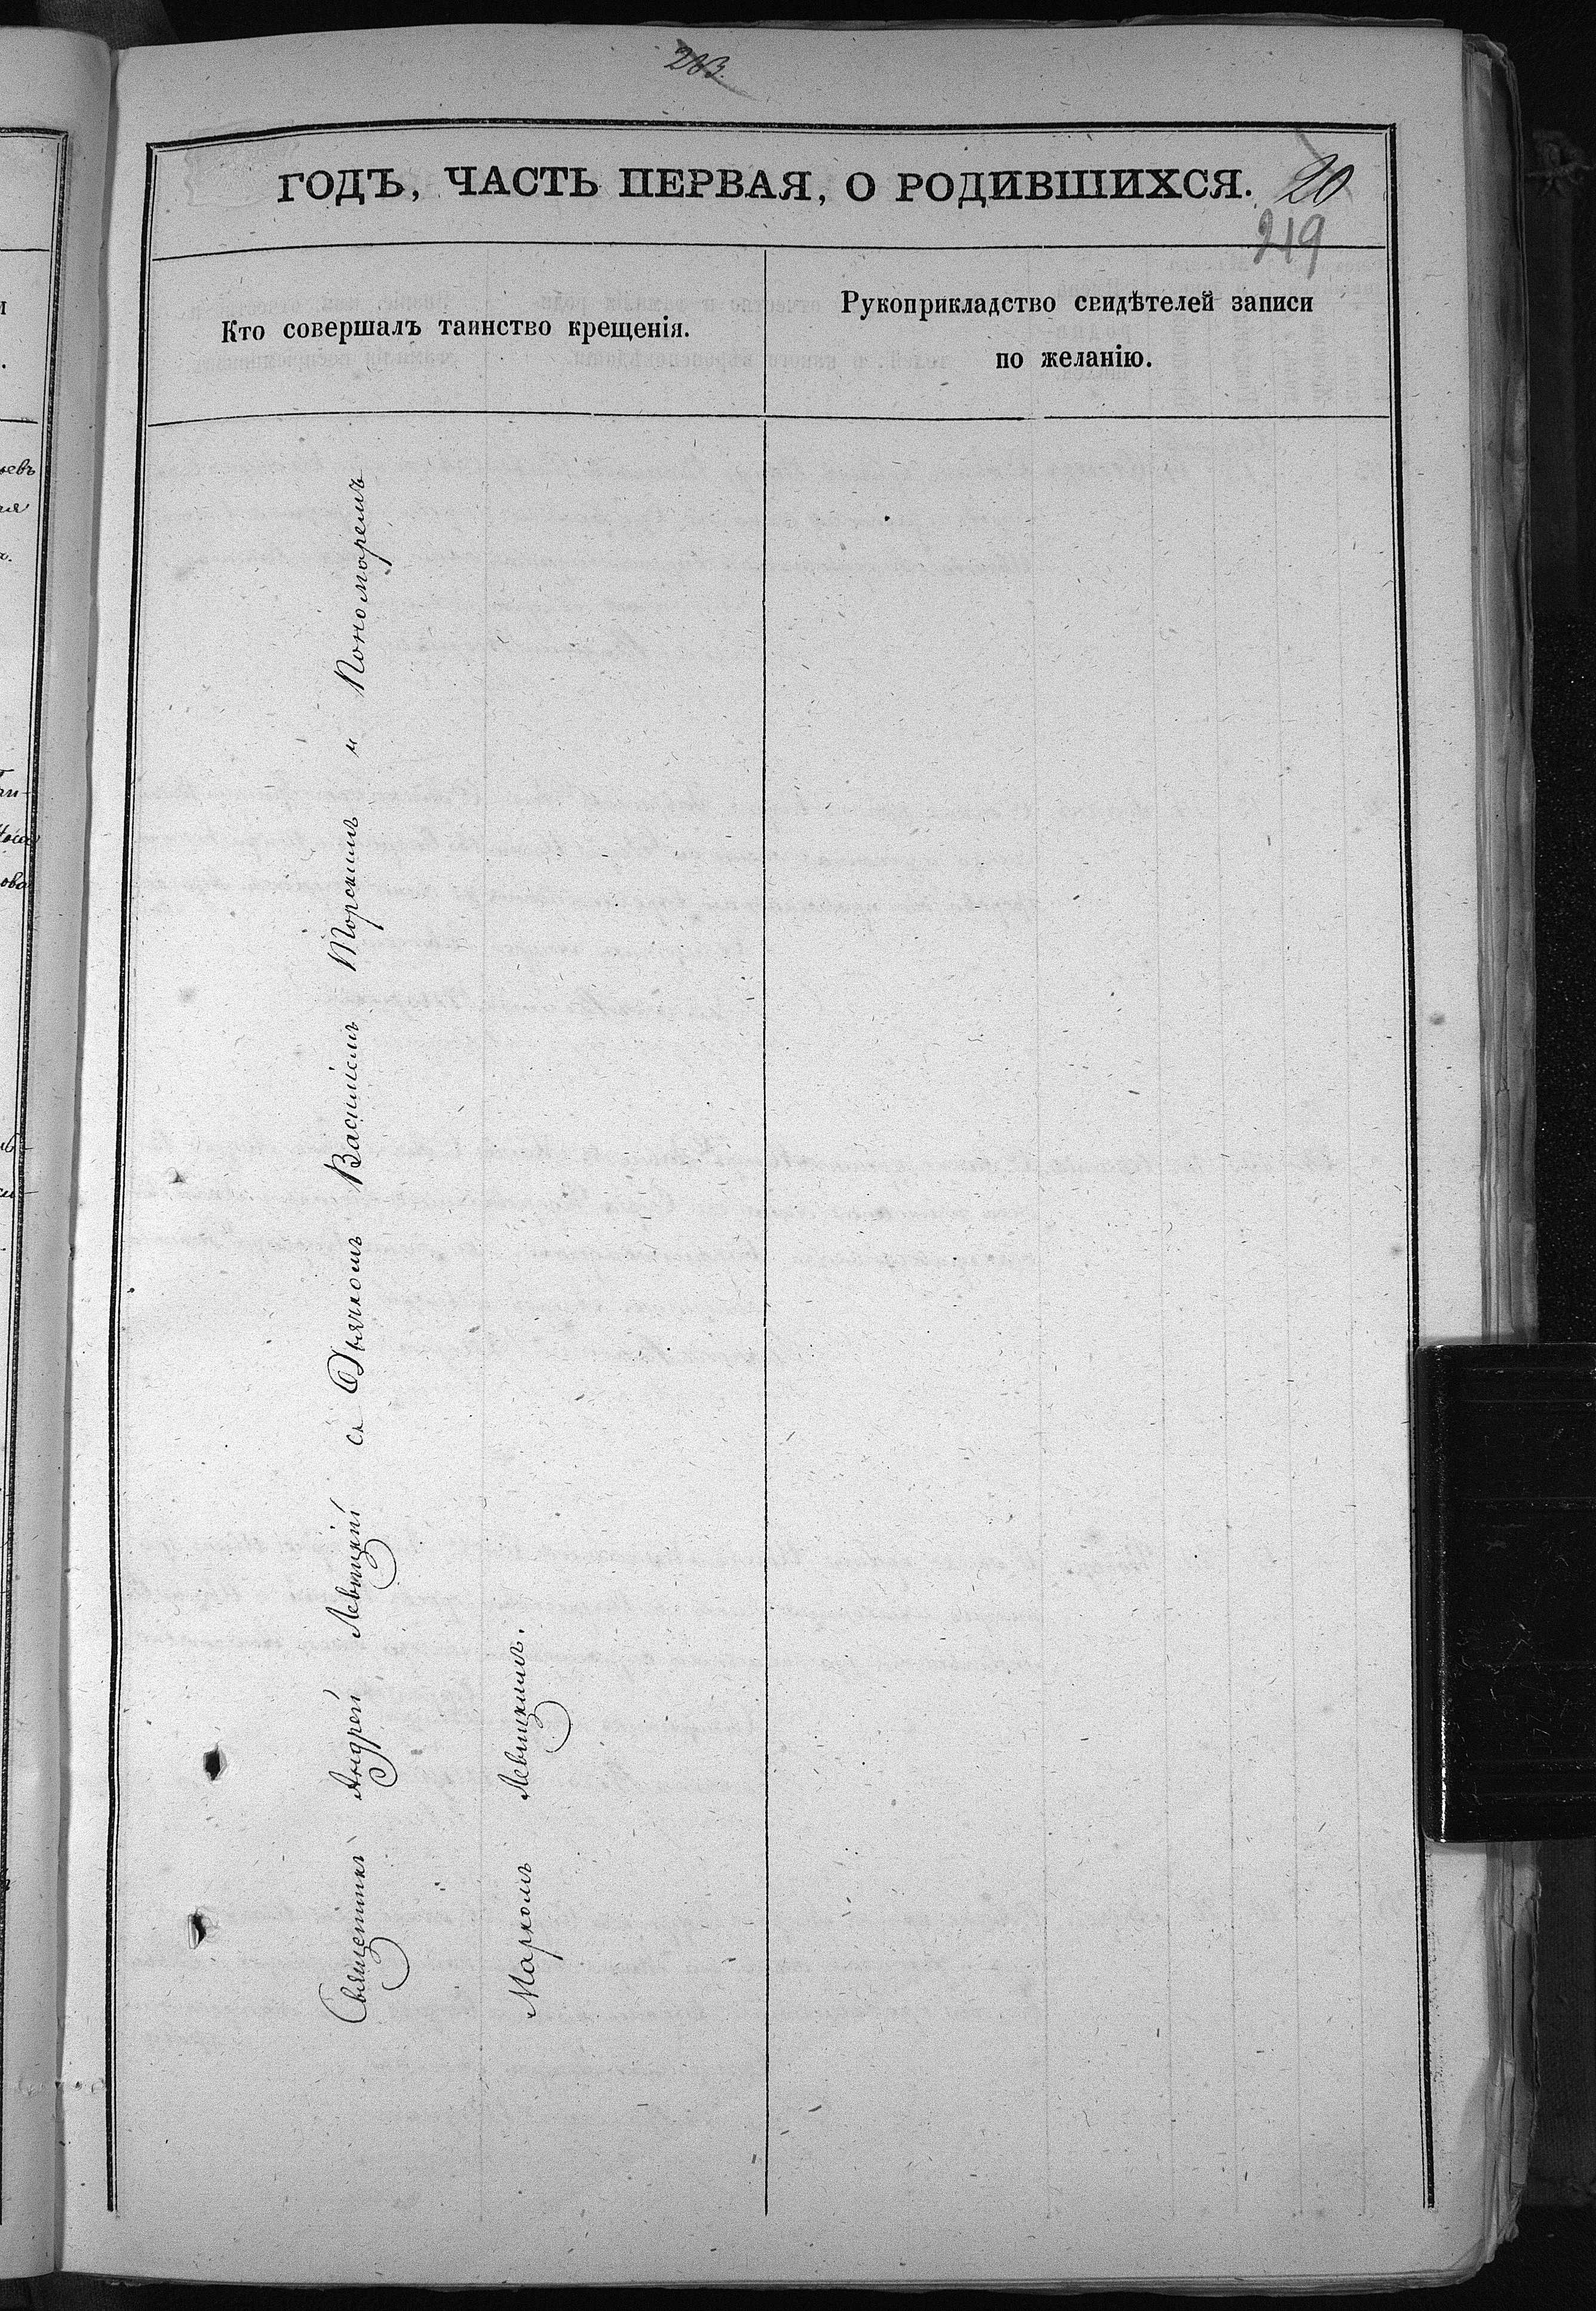 263.
ГОДЪ, ЧАСТЬ ПЕРВАЯ, О РОДИВШИХСЯ.
20
219
Кто совершалъ таинство крещенія.
Рукоприкладство свидѣтелей записи
по желанію.
Священникъ Андрей Левицкій съ Дьячкомъ Василіемъ Торскимъ и Пономаремъ
Маркомъ Левицкимъ.